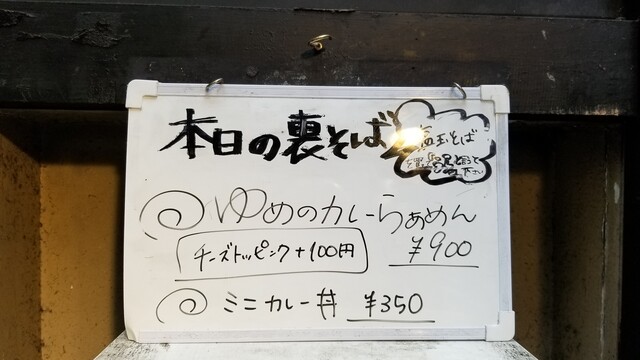 本日の裏そば
玉そば
下さい
ゆめのカレーらぁめん
チーズトッピング+100円
¥900
ミニカレー丼 ¥350